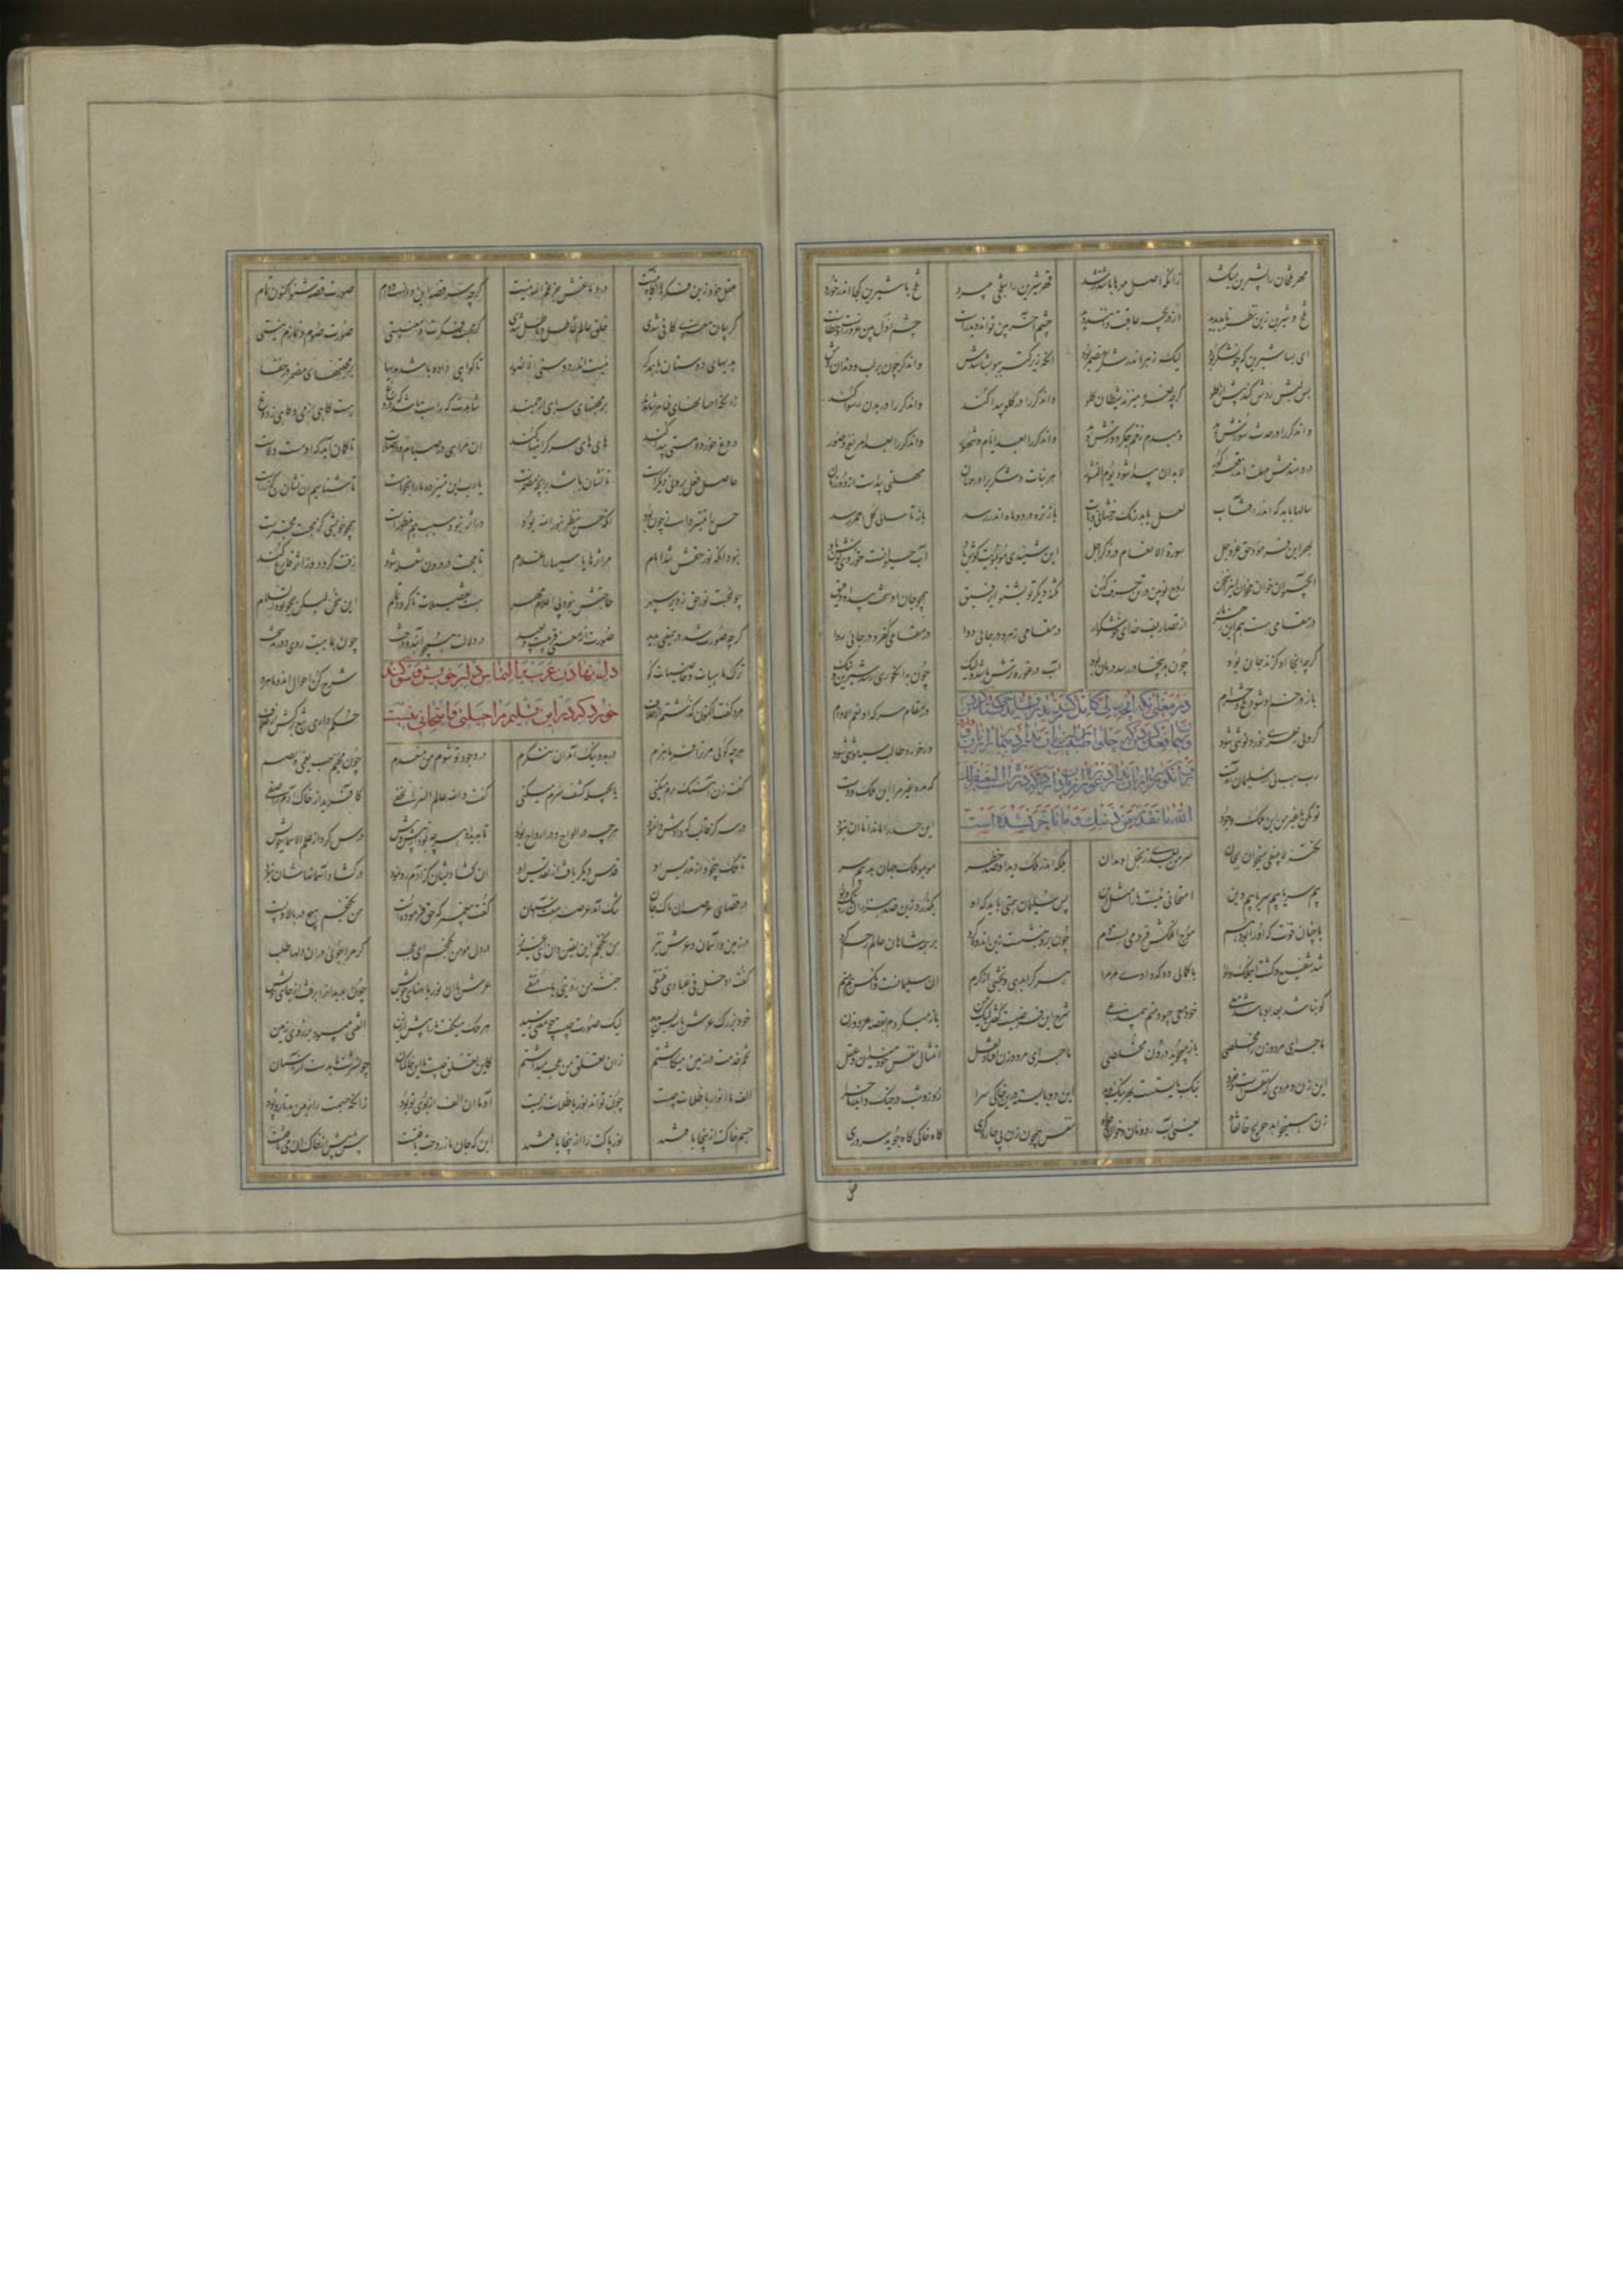 مهر تلخان را بشیرین میکشد زانکه اصل مهرها باشد رشد قهر شیرین را بتلخی میبرد تلخ با شیرین کجا اندر خورد
تلخ و شیرین زین نظر ناید پدید از دریچه عاقبت دانند دید چشم آخر بین تواند دید راست چشم اول بین غرورست و خطاست
ای بسا شیرین که چون شکر بود لیک زهر اندر شکر مضمر بود آنکه زیرکتر ببو بشناسدش واندگر چون بر لب و دندان زدش
پس لبش ردش کند پیش از گلو گرچه نعره میزند شیطان کلوا واندگر را در گلو پیدا کند واندگر را در بدن رسوا کند
واندگر را در حدث سوزش دهد دمبدم زخم جگر دوزش دهد واندگر را بعد ایام و شهور واندگر را بعد مرگ
ور دهندش مهلت اندر قعر گور لابد آن پیدا شود یوم النشور هر نبات و شکری را در جهان مهلتی پیداست از دور زمان
سالها باید که اندر آفتاب لعل یابد رنگ رخشانی و تاب باز تره در دو ماه اندر رسد باز تا سالی گل احمر رسد
بهر این فرمود حق عز و جل سورة الانعام در ذکر اجل این شنیدی مو بمویت گوش باد آب حیوانست خوردی نوش باد
آب حیوان خوان مخوان این را سخن روح نو بین در تن حرف کهن نکته دیگر تو بشنو ای رفیق همچو جان او سخت پیدا و دقیق
در مقامی هست هم این زهر مار از تصاریف خدای خوشگوار در مقامی زهر و در جایی دوا در مقامی کفر و در جایی روا
گرچه اینجا او گزند جان بود چون بدینجا در رسد درمان بود آب در غوره ترش باشد ولیک چون به انگوری رسد شیرین و نیک
باز در خم او شود تلخ و حرام در مقام سرکه او نعم الادام
در معنی آنکه آنچه ولی کامل کند مرید را نشاید گستاخی کردن
گر ولی زهری خورد نوشی شود ور خورد طالب سیه هوشی شود
رب هب لی از سلیمان آمدست که مده غیر مرا این ملک و دست
تو مکن با غیر من این لطف و جود این حسد را ماند اما آن نبود
الله ما تقدم من ذنبک و ما تاخر شده است
نکته لا ینبغی میخوان بجان سر من بعدی ز بخل او مدان بلکه اندر ملک دید او صد خطر موبمو ملک جهان بد بیم سر
بیم سر با بیم سر با بیم دین امتحانی نیست ما را مثل این پس سلیمان همتی باید که او بگذرد زین صد هزاران رنگ و بو
با چنان قوت که او را بود هم موج آن ملکش فرو می بست دم چون برو بنشست زین اندوه گرد بر همه شاهان عالم رحم کرد
شد شفیع و گفت این ملک و لوا با کمالی ده که دادی مر مرا هر کرا بدهی و بخشی از کرم آن سلیمانست وانکس هم منم
او نباشد بعد او باشد معی خود معی چبود منم بی مدعی شرح این فرضست گفتن لیک من باز میگردم بقصه مرد و زن
ماجرای مرد و زن را مخلصی باز میجوید درون مخلصی ماجرای مرد و زن افتاد نقل آن مثال نفس خود میدان و عقل
این زن و مردی که نفسست و خرد نیک بایستست بهر نیک و بد این دو بایسته درین خاکی سرا روز و شب در جنگ و اندر ماجرا
زن همیخواهد حویج خانقاه یعنی آب رو و نان و خوان و جاه نفس همچون زن پی چاره گری گاه خاکی گاه جوید سروری
عقل خود زین فکرها آگاه نیست در دماغش جز غم الله نیست گرچه سر قصه این دانه ست و دام صورت قصه شنو اکنون تمام
گر بیان معنوی کافی شدی خلق عالم عاطل و باطل بدی گر محبت فکرت و معنیستی صورت صوم و نمازت نیستی
هدیهای دوستان با همدگر نیست اندر دوستی الا صور تا گواهی داده باشد هدیها بر محبتهای مضمر در خفا
زانکه احسانهای ظاهر شاهدند بر محبتهای سر ای ارجمند شاهدت گه راست باشد گه دروغ مست گاهی از می و گاهی ز دوغ
دوغ خورده مستی پیدا کند های های سر گرانیها کند آن مرایی در صیام و در صلاست تا گمان آید که او مست ولاست
حاصل افعال برونی دیگرست تا نشان باشد بر آنچه مضمرست یا رب این تمییز ده ما را بخواست تا شناسیم آن نشان کژ ز راست
حس را تمییز دانی چون بود آنکه حس ینظر بنور الله بود ور اثر نبود سبب هم مظهرست همچو خویشی کز محبت مخبرست
نبود آنکه نور حقش شد امام مر اثر را یا سببها را غلام تا محبت در درون شعله زند زفت گردد وز اثر فارغ کند
حاجتش نبود پی اعلام مهر چون محبت نور حق زد بر سپهر هست تفصیلات تا گردد تمام این سخن لیکن بجو تو والسلام
گرچه صورت شد درین معنی پدید صورت از معنی قریبست و بعید در دلالت همچو آبند و درخت چون بماهیت روی دورند سخت
ترک ماهیات و خاصیات گو شرح کن احوال آن دو ماه رو
دل نهادن عرب بالتماس دلبر خویش و سوگند
مرد گفت اکنون گذشتم از خلاف حکم داری تیغ برکش از غلاف
خورد که در این تسلیم مرا حیلتی و امتحانی نیست
هر چه گویی مر ترا فرمان برم در بد و نیک آمد آن ننگرم در وجود تو شوم من منعدم چون محبم حب یعمی و یصم
گفت زن آهنگ برم میکنی یا بحیلت کشف سرم میکنی گفت والله عالم السر الخفی کافرید از خاک آدم را صفی
در سه گز قالب که دادش وا نمود هر چه در الواح و در ارواح بود تا ابد هر چه بود او پیش پیش درس کرد از علم الاسماء خویش
تا ملک بیخود شد از تدریس او قدس دیگر یافت از تقدیس او آن گشادیشان کز آدم رو نمود در گشاد آسمانهاشان نبود
در فضای عرصه آن پاک جان تنگ آمد عرصه هفت آسمان گفت پیغمبر که حق فرموده است من نگنجم هیچ در بالا و پست
در زمین و آسمان و عرش نیز من نگنجم این یقین دان ای عزیز در دل مومن بگنجم ای عجب گر مرا جویی در آن دلها طلب
گفت ادخل فی عبادی تلتقی جنة من رؤیتی یا متقی عرش با آن نور با پهنای خویش چون بدید او را برفت از جای خویش
خود بزرگی عرش باشد بس مدید لیک صورت چیست چون معنی رسید هر ملک میگفت ما را پیش ازین الفتی میبود بر روی زمین
تخم خدمت در زمین میکاشتیم زان تعلق ما عجب میداشتیم کاین تعلق چیست با این خاکمان چون سرشت ما بدست از آسمان
الف ما انوار با ظلمات چیست چون تواند نور با ظلمات زیست آدما آن الف از بوی تو بود زانکه جسمت را زمین بد تار و پود
جسم خاکت را ازینجا یافتند نور پاکت را ازینجا یافتند این که جان ما ز روحت یافتست پیش پیش از خاک آن می تافتست